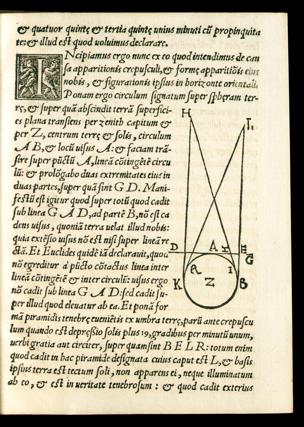 & quatuor quintę & tertia quintę unius minuti cū propinquita
te: & illud est quod uoluimus declarare.
INcipiamus ergo nunc ex eo quod intendimus de cau
sa apparitionis crepusculi, & formę apparitiōis eius
nobis, & figurationis ipsius in horizonte orientali.
Ponam ergo circulum signatum super spheram ter-
rę, & super quā abscindit terrā superfici-
es plana transiens per zenith capitum &
per Z, centrum terrę & solis, circulum
A B, & locū uisus A: & faciam trā-
sire super pūctū A, lineā cōtingētē circu
lū: & prolōgabo duas extremitates eius in
duas partes, super quā sint G D. Mani-
festū est igitur quod super totū quod cadit
sub linea G A D, ad partē B, nō est ca
dens uisus, quoniā terra uelat illud nobis:
quia extēsio uisus nō est nisi super lineā re
ctā. Et Euclides quidē iā declarauit, quod
nō egreditur à pūcto cōtactus linea inter
lineā cōtingētē & inter circulū: uisus ergo
nō cadit sub linea G A D: sed cadit su-
per illud quod eleuatur ab ea. Et ponā for
mā pyramidis tenebrę eueniētis ex umbra terrę, parū ante crepuscu
lum quando est depreßio solis plus 19, gradibus per minutū unum,
uerbi gratia aut circiter, super quam sint B E L R: totum enim
quod cadit in hac piramide designata cuius caput est L, & basis
ipsius terra est tectum soli, non apparens ei, neque illuminatum
ab eo, & est in ueritate tenebrosum: & quod cadit exterius
H
D A E
G
Q I
K Z B